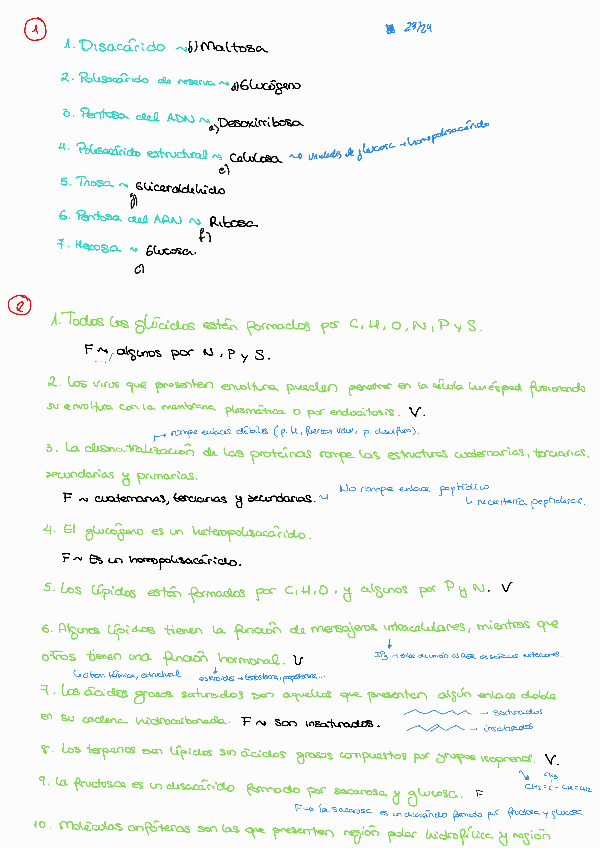 1
23/24
1. Disacárido ~ b) Maltosa
2. Polisacárido de reserva ~ d) Glucógeno
3. Pentosa del ADN ~ a) Desoxirribosa
4. Polisacárido estructural ~ Celulosa ~ unidades de glucosa → homopolisacárido
e)
5. Triosa ~ Gliceraldehído
g)
6. Pentosa del ARN ~ Ribosa
f)
7. Hexosa ~ Glucosa.
c)
2
1. Todos los glúcidos están formados por C, H, O, N, P y S.
F ~ algunos por N, P y S.
2. Los virus que presenten envoltura pueden penetrar en la célula huésped fusionando
su envoltura con la membrana plasmática o por endocitosis. V.
→ rompe enlaces débiles (p. H, fuerzas vdw, p. disulfuro).
3. La desnaturalización de las proteínas rompe las estructuras cuaternarias, terciarias,
secundarias y primarias.
No rompe enlace peptídico
F ~ cuaternarias, terciarias y secundarias. ~
↳ necesitaría peptidasas.
4. El glucógeno es un heteropolisacárido.
F ~ Es un homopolisacárido.
5. Los lípidos están formados por C, H, O, y algunos por P y N. V
6. Algunos lípidos tienen la función de mensajeros intracelulares, mientras que
otros tienen una función hormonal. V
IP3 →
↳ otros: térmica, estructural
esteroides → testosterona, progesterona...
7. Los ácidos grasos saturados son aquellos que presentan algún enlace doble
→ saturados
en su cadena hidrocarbonada. F ~ son insaturados.
→ insaturados
8. Los terpenos son lípidos sin ácidos grasos compuestos por grupos isoprenos. V.
CH3
CH2 = C - CH = CH2
9. La fructosa es un disacárido formado por sacarosa y glucosa. F
F → la sacarosa es un disacárido formado por fructosa y glucosa.
10. Moléculas anfóteras son las que presentan región polar hidrofílica y región